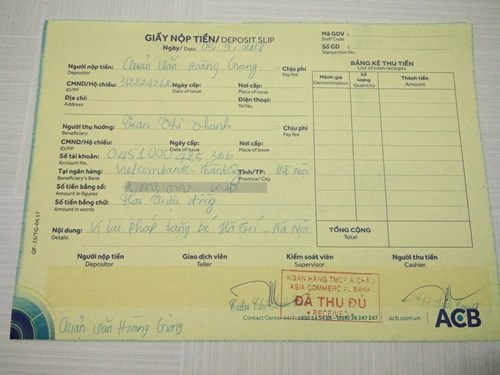 GIẤY NỘP TIỀN/ DEPOSIT SLIP
Ngày/ Date 05/9/2018
Mã GDV :
Staff Code
Số GD :
Transaction No.
Người nộp tiền: Quản Văn Hoàng Giang Chịu phí
Depositor Pay fee
CMND/Hộ chiếu: Ngày cấp: Nơi cấp:
ID/PP Date of issue Place of issue
Địa chỉ: Điện thoại:
Address Tel No
Người thụ hưởng: Trần Thị Thanh Chịu phí
Beneficiary Pay fee
CMND/Hộ chiếu: Ngày cấp: Nơi cấp:
ID/PP Date of issue Place of issue
Số tài khoản: 0451000485366
Account No.
Tại ngân hàng: Vietcombank - Thành Công Tỉnh/TP: Hà Nội
Beneficiary's Bank Province/ City
Số tiền bằng số:
Amount in figures
Số tiền bằng chữ: Hai triệu đồng
Amount in words
Nội dung: - Hà Nội
BẢNG KÊ THU TIỀN
List of cash receipts
Mệnh giá Số lượng Thành tiền
Denomination Quantity Amount
TỔNG CỘNG
Total
Người nộp tiền Giao dịch viên Kiểm soát viên Người thu tiền
Depositor Teller Supervisor Cashier
NGÂN HÀNG TMCP Á CHÂU
ASIA COMMERCIAL BANK
ĐÃ THU ĐỦ
• RECEIVED •
Quản Văn Hoàng Giang
Contact Center 24/7: 1900 54 54 86 - (028) 38 247 247
acb.com.vn
ACB
QF- 23/TG-04.17